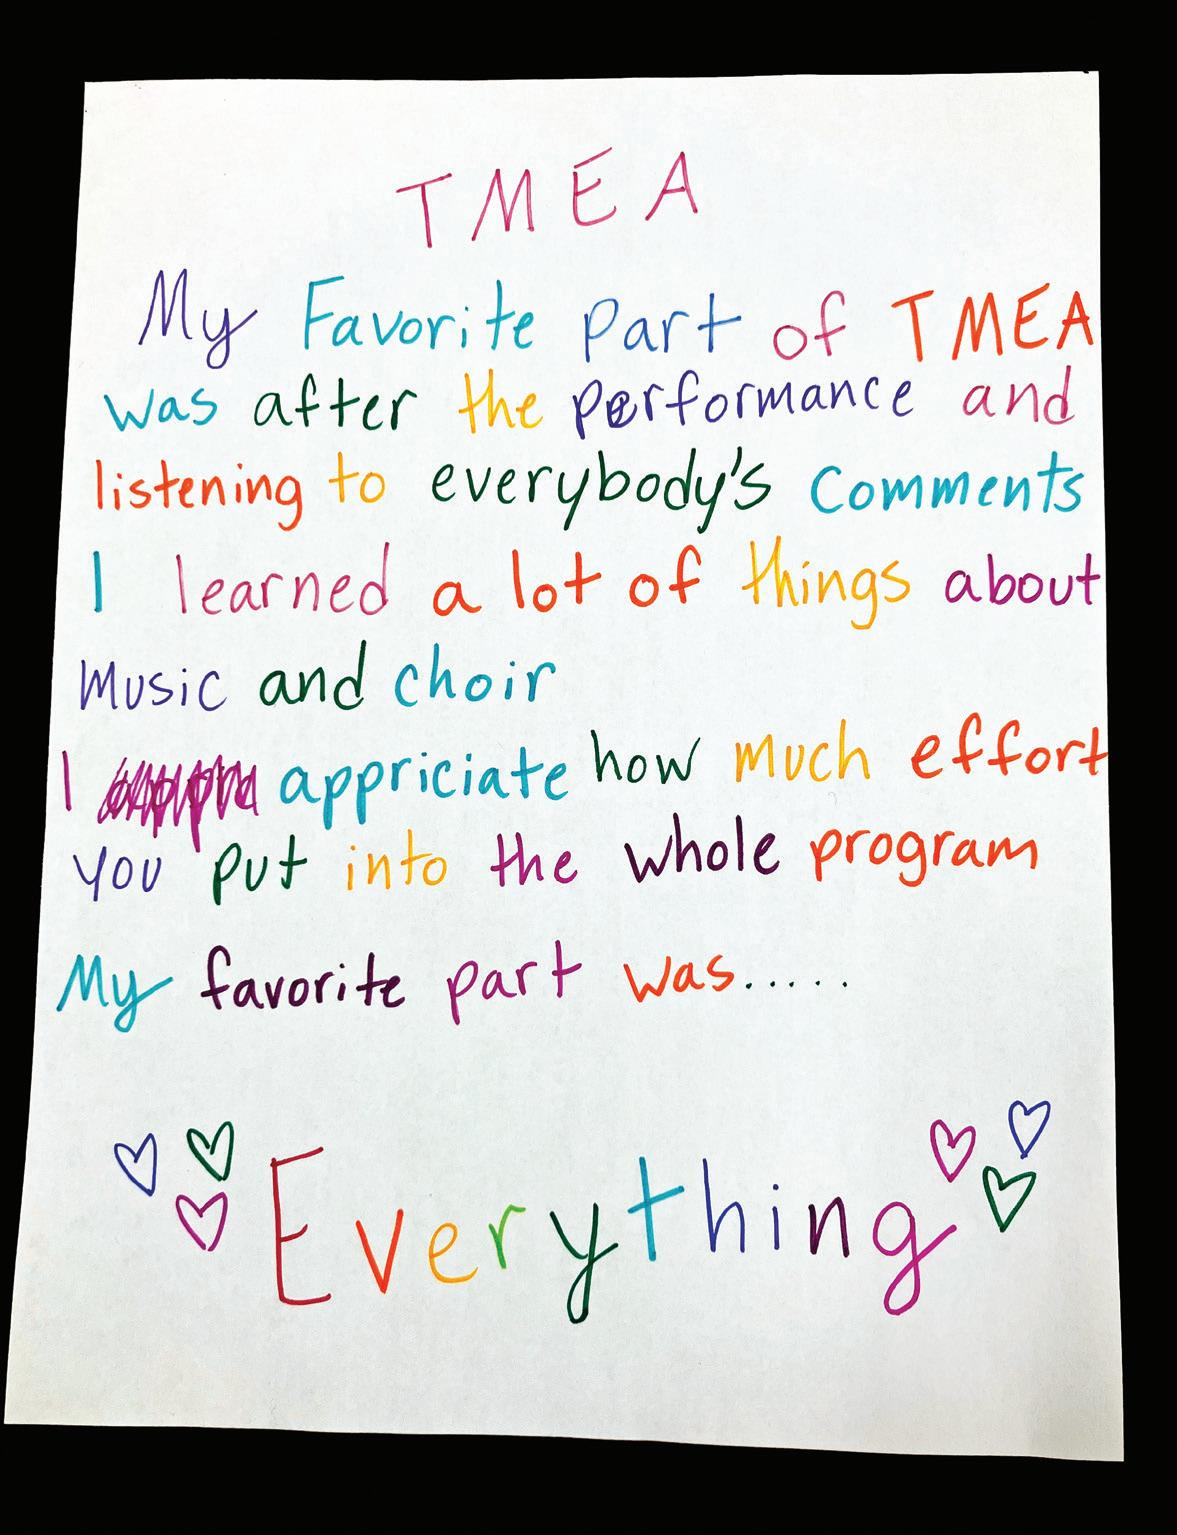 TMEA
My Favorite part of TMEA
was after the performance and
listening to everybody's comments
I learned a lot of things about
Music and choir
I appriciate how much effort
you put into the whole program
My favorite part was.....
Everything